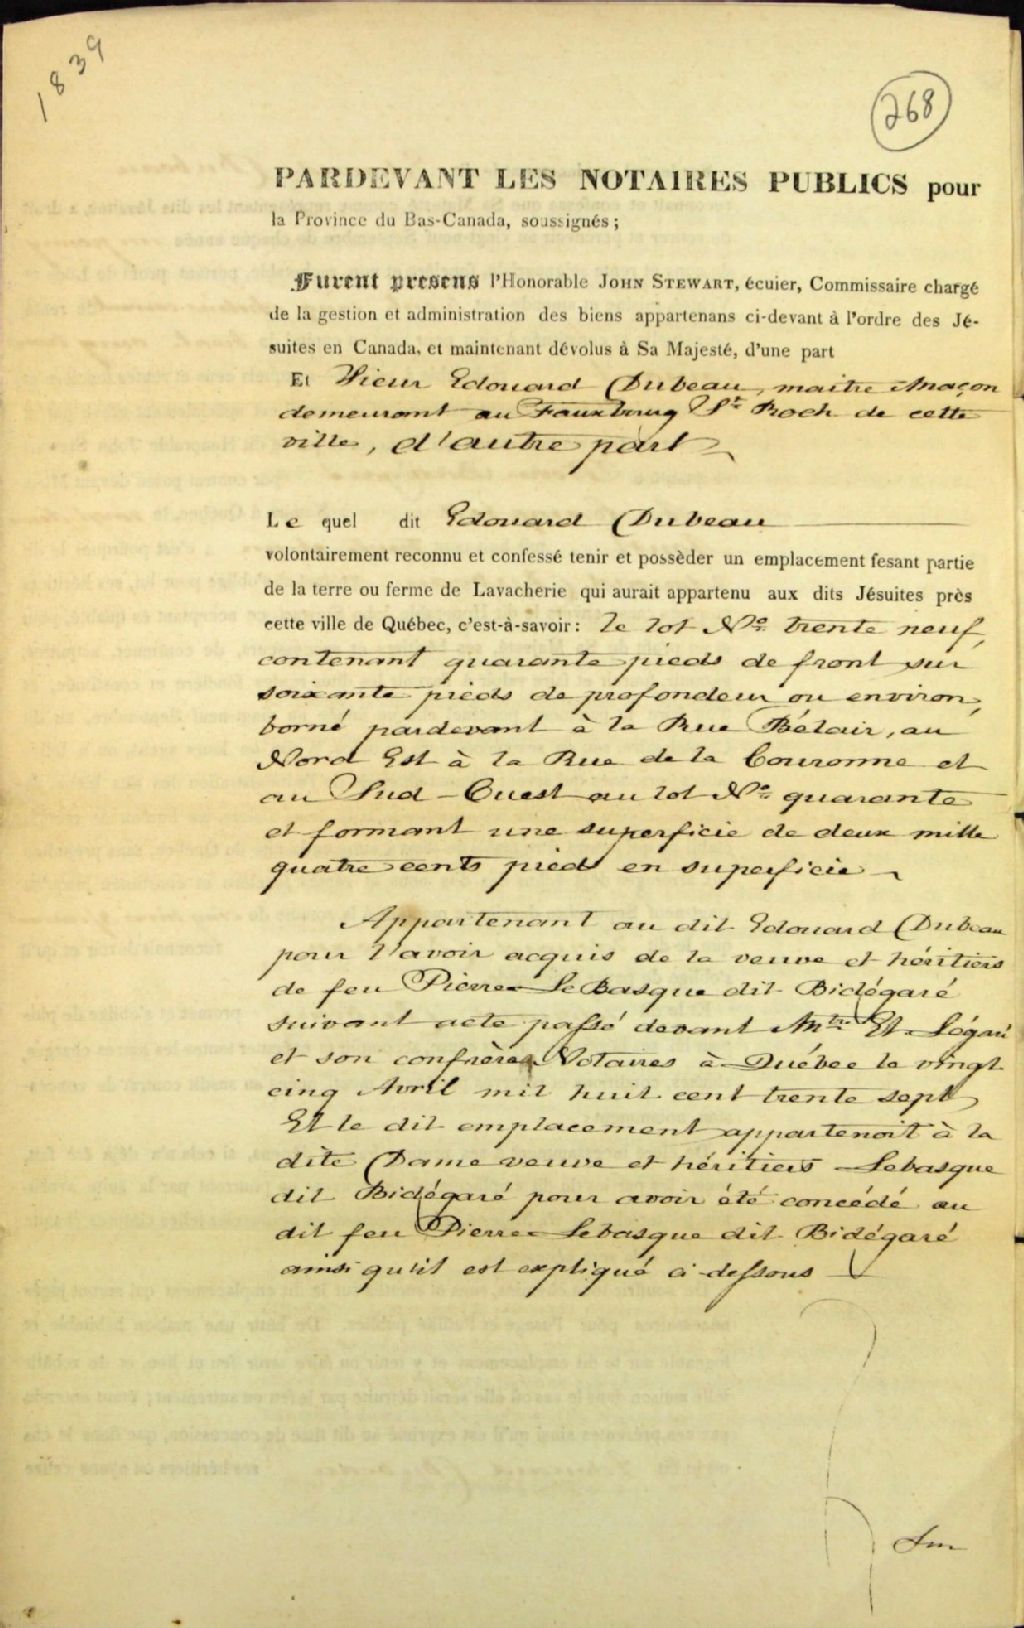 1839
268
PARDEVANT LES NOTAIRES PUBLICS pour
la Province du Bas-Canada, soussignés;
Furent presens l'Honorable JOHN STEWART, écuier, Commissaire chargé
de la gestion et administration des biens appartenans ci-devant à l'ordre des Jé-
suites en Canada, et maintenant dévolus à Sa Majesté, d'une part
Et Sieur Edouard Dubeau, maitre maçon
demeurant au Fauxbourg St Roch de cette
ville, d'autre part
Le quel dit Edouard Dubeau
volontairement reconnu et confessé tenir et possèder un emplacement fesant partie
de la terre ou ferme de Lavacherie qui aurait appartenu aux dits Jésuites près
cette ville de Québec, c'est-à-savoir: le lot No trente neuf,
contenant quarante pieds de front sur
soixante pieds de profondeur ou environ,
borné pardevant à la Rue Bélair, au
Nord Est à la Rue de la Couronne et
au Sud-Ouest au lot No quarante
et formant une superficie de deux mille
quatre cents pieds en superficie
Appartenant au dit Edouard Dubeau
pour l'avoir acquis de la veuve et héritiers
de feu Pierre Le Basque dit Bidégaré
suivant acte passé devant Antne Et Légaré
et son confrère Notaires à Québec le vingt
cinq Avril mil huit cent trente sept
Et le dit emplacement appartenoit à la
dite Dame veuve et héritiers Lebasque
dit Bidégaré pour avoir été concédé au
dit feu Pierre Lebasque dit Bidégaré
ainsi qu'il est expliqué ci-dessous